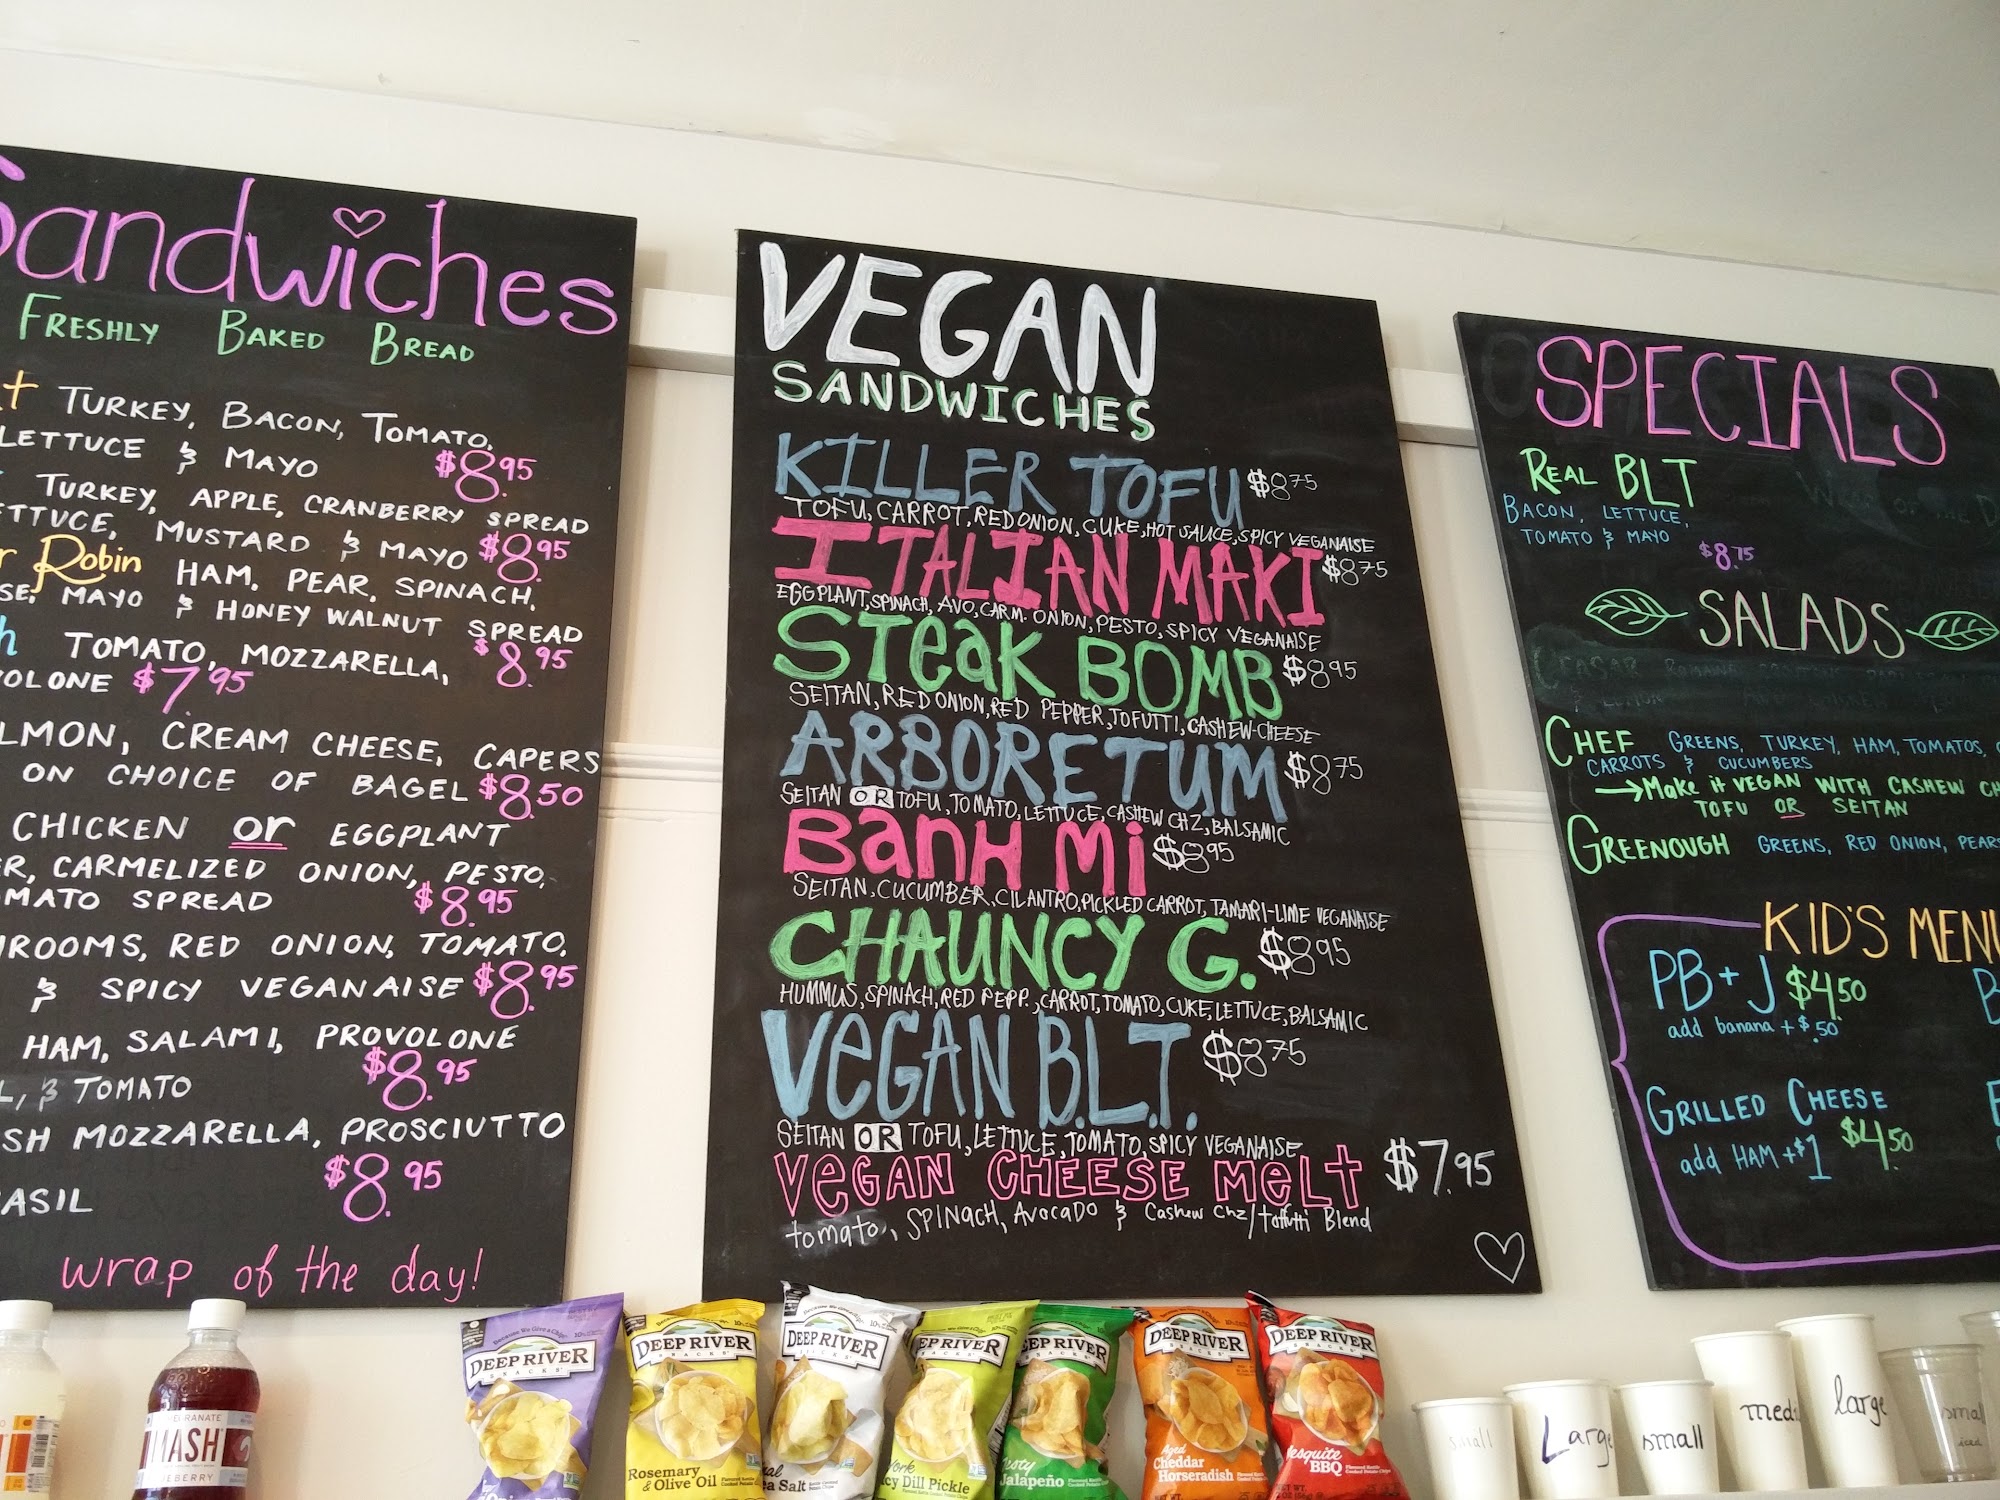 Sandwiches
FRESHLY BAKED BREAD
TURKEY, BACON, TOMATO,
LETTUCE & MAYO $8.95
TURKEY, APPLE, CRANBERRY SPREAD
LETTUCE, MUSTARD & MAYO $8.95
Robin HAM, PEAR, SPINACH,
MAYO & HONEY WALNUT SPREAD
$8.95
TOMATO, MOZZARELLA,
$7.95
CREAM CHEESE, CAPERS
ON CHOICE OF BAGEL $8.50
CHICKEN or EGGPLANT
CARMELIZED ONION, PESTO,
SPREAD $8.95
RED ONION, TOMATO,
& SPICY VEGANAISE $8.95
HAM, SALAMI, PROVOLONE
& TOMATO $8.95
MOZZARELLA, PROSCIUTTO
$8.95
wrap of the day!
VEGAN
SANDWICHES
KILLER TOFU $8.75
TOFU, CARROT, RED ONION, CUKE, HOT SAUCE, SPICY VEGANAISE
ITALIAN MAKI $8.75
EGGPLANT, SPINACH, AVO, CARM. ONION, PESTO, SPICY VEGANAISE
STEAK BOMB $8.95
SEITAN, RED ONION, RED PEPPER, TOFUTTI, CASHEW-CHEESE
ARBORETUM $8.75
SEITAN OR TOFU, TOMATO, LETTUCE, CASHEW CHZ, BALSAMIC
BANH MI $8.95
SEITAN, CUCUMBER, CILANTRO, PICKLED CARROT, TAMARI-LIME VEGANAISE
CHAUNCY G. $8.95
HUMMUS, SPINACH, RED PEPP., CARROT, TOMATO, CUKE, LETTUCE, BALSAMIC
VEGAN B.L.T. $8.75
SEITAN OR TOFU, LETTUCE, TOMATO, SPICY VEGANAISE
VEGAN CHEESE MELT $7.95
tomato, SPINACH, AVOCADO & Cashew Chz/toffutti Blend
SPECIALS
REAL BLT
BACON, LETTUCE,
TOMATO & MAYO
$8.75
SALADS
CHEF GREENS, TURKEY, HAM, TOMATOS,
CARROTS & CUCUMBERS
→ Make it VEGAN WITH CASHEW
TOFU OR SEITAN
GREENOUGH GREENS, RED ONION, PEARS
KID'S MENU
PB + J $4.50
add banana + $.50
GRILLED CHEESE
add HAM + $1 $4.50
MASH
DEEP RIVER
SNACKS
DEEP RIVER
SNACKS
Rosemary
& Olive Oil
DEEP RIVER
SNACKS
Salt
DEEP RIVER
SNACKS
Dill Pickle
DEEP RIVER
SNACKS
Jalapeño
DEEP RIVER
SNACKS
Aged
Cheddar
Horseradish
DEEP RIVER
SNACKS
Mesquite
BBQ
small
Large
small
large
iced